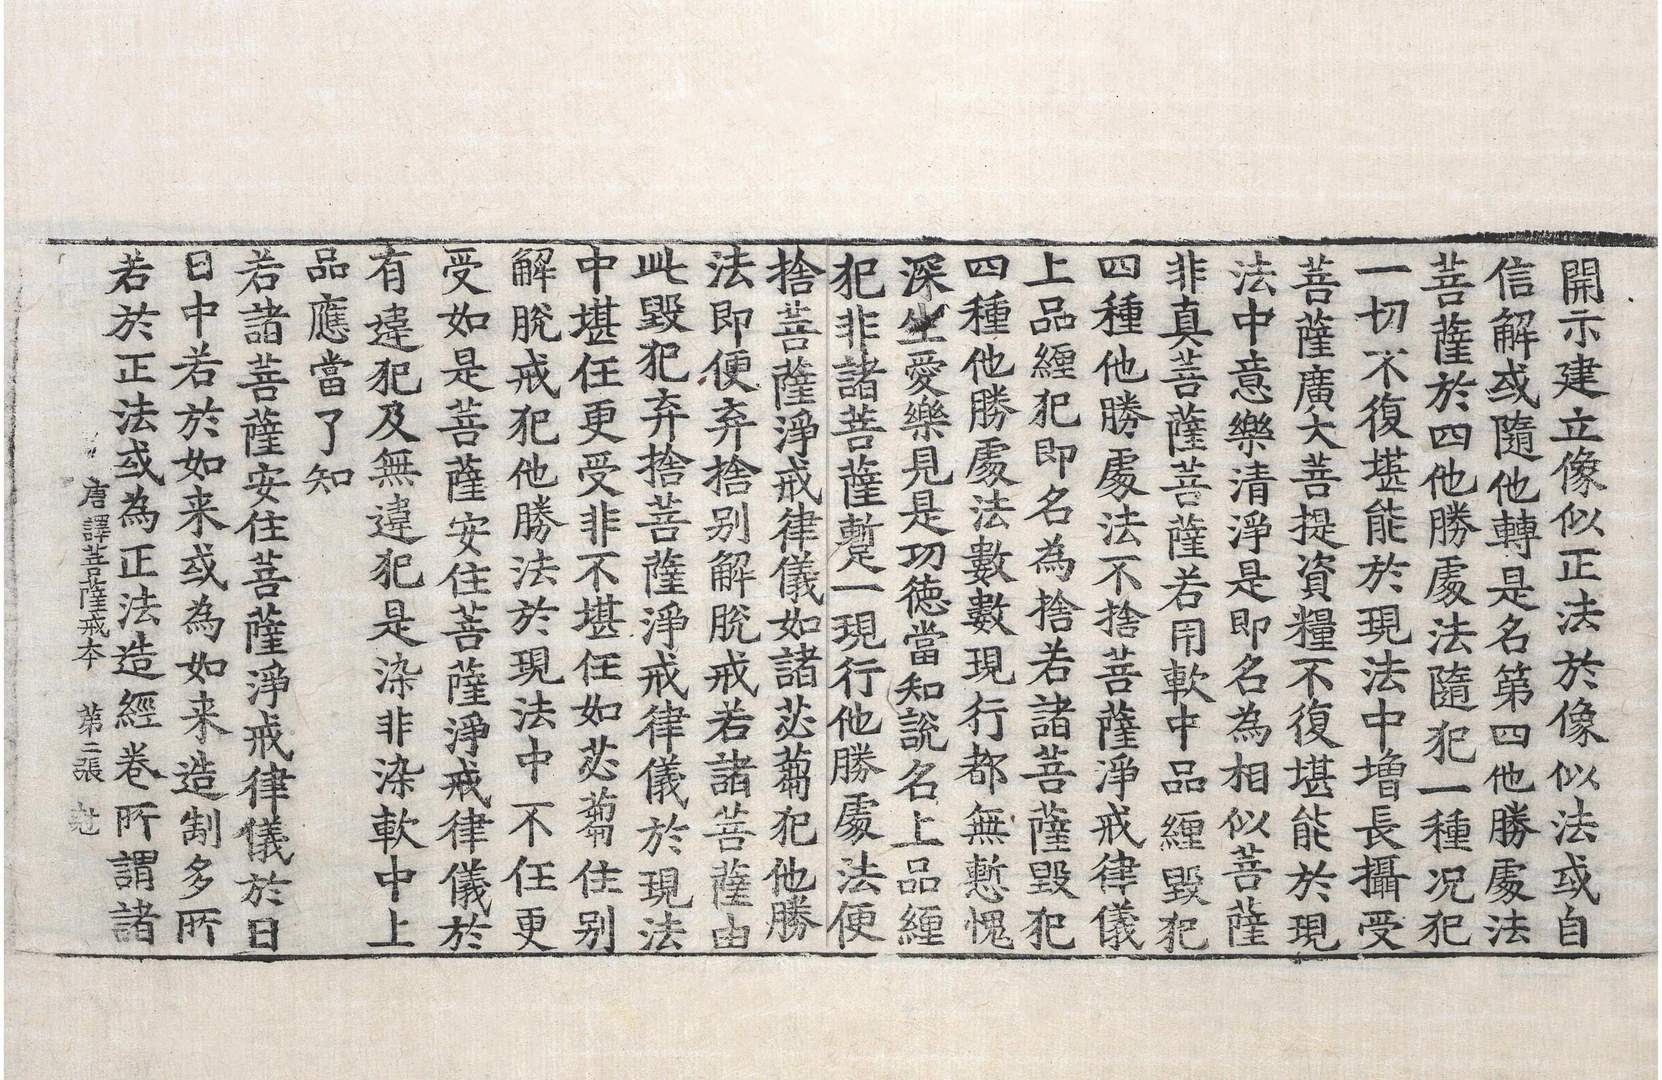 開示建立像似正法於像似法或自
信解或隨他轉是名第四他勝處法
菩薩於四他勝處法隨犯一種况犯
一切不復堪能於現法中增長攝受
菩薩廣大菩提資糧不復堪能於現
法中意樂清淨是即名為相似菩薩
非真菩薩菩薩若用軟中品纏毀犯
四種他勝處法不捨菩薩淨戒律儀
上品纏犯即名為捨若諸菩薩毀犯
四種他勝處法數數現行都無慙愧
深生愛樂見是功徳當知說名上品纏
犯非諸菩薩蹔一現行他勝處法便
捨菩薩淨戒律儀如諸苾蒭犯他勝
法即便弃捨別解脫戒若諸菩薩由
此毀犯弃捨菩薩淨戒律儀於現法
中堪任更受非不堪任如苾蒭住別
解脫戒犯他勝法於現法中不任更
受如是菩薩安住菩薩淨戒律儀於
有違犯及無違犯是染非染軟中上
品應當了知
若諸菩薩安住菩薩淨戒律儀於日
日中若於如来或為如来造制多所
若於正法或為正法造經卷所謂諸
唐譯菩薩戒本 第二張